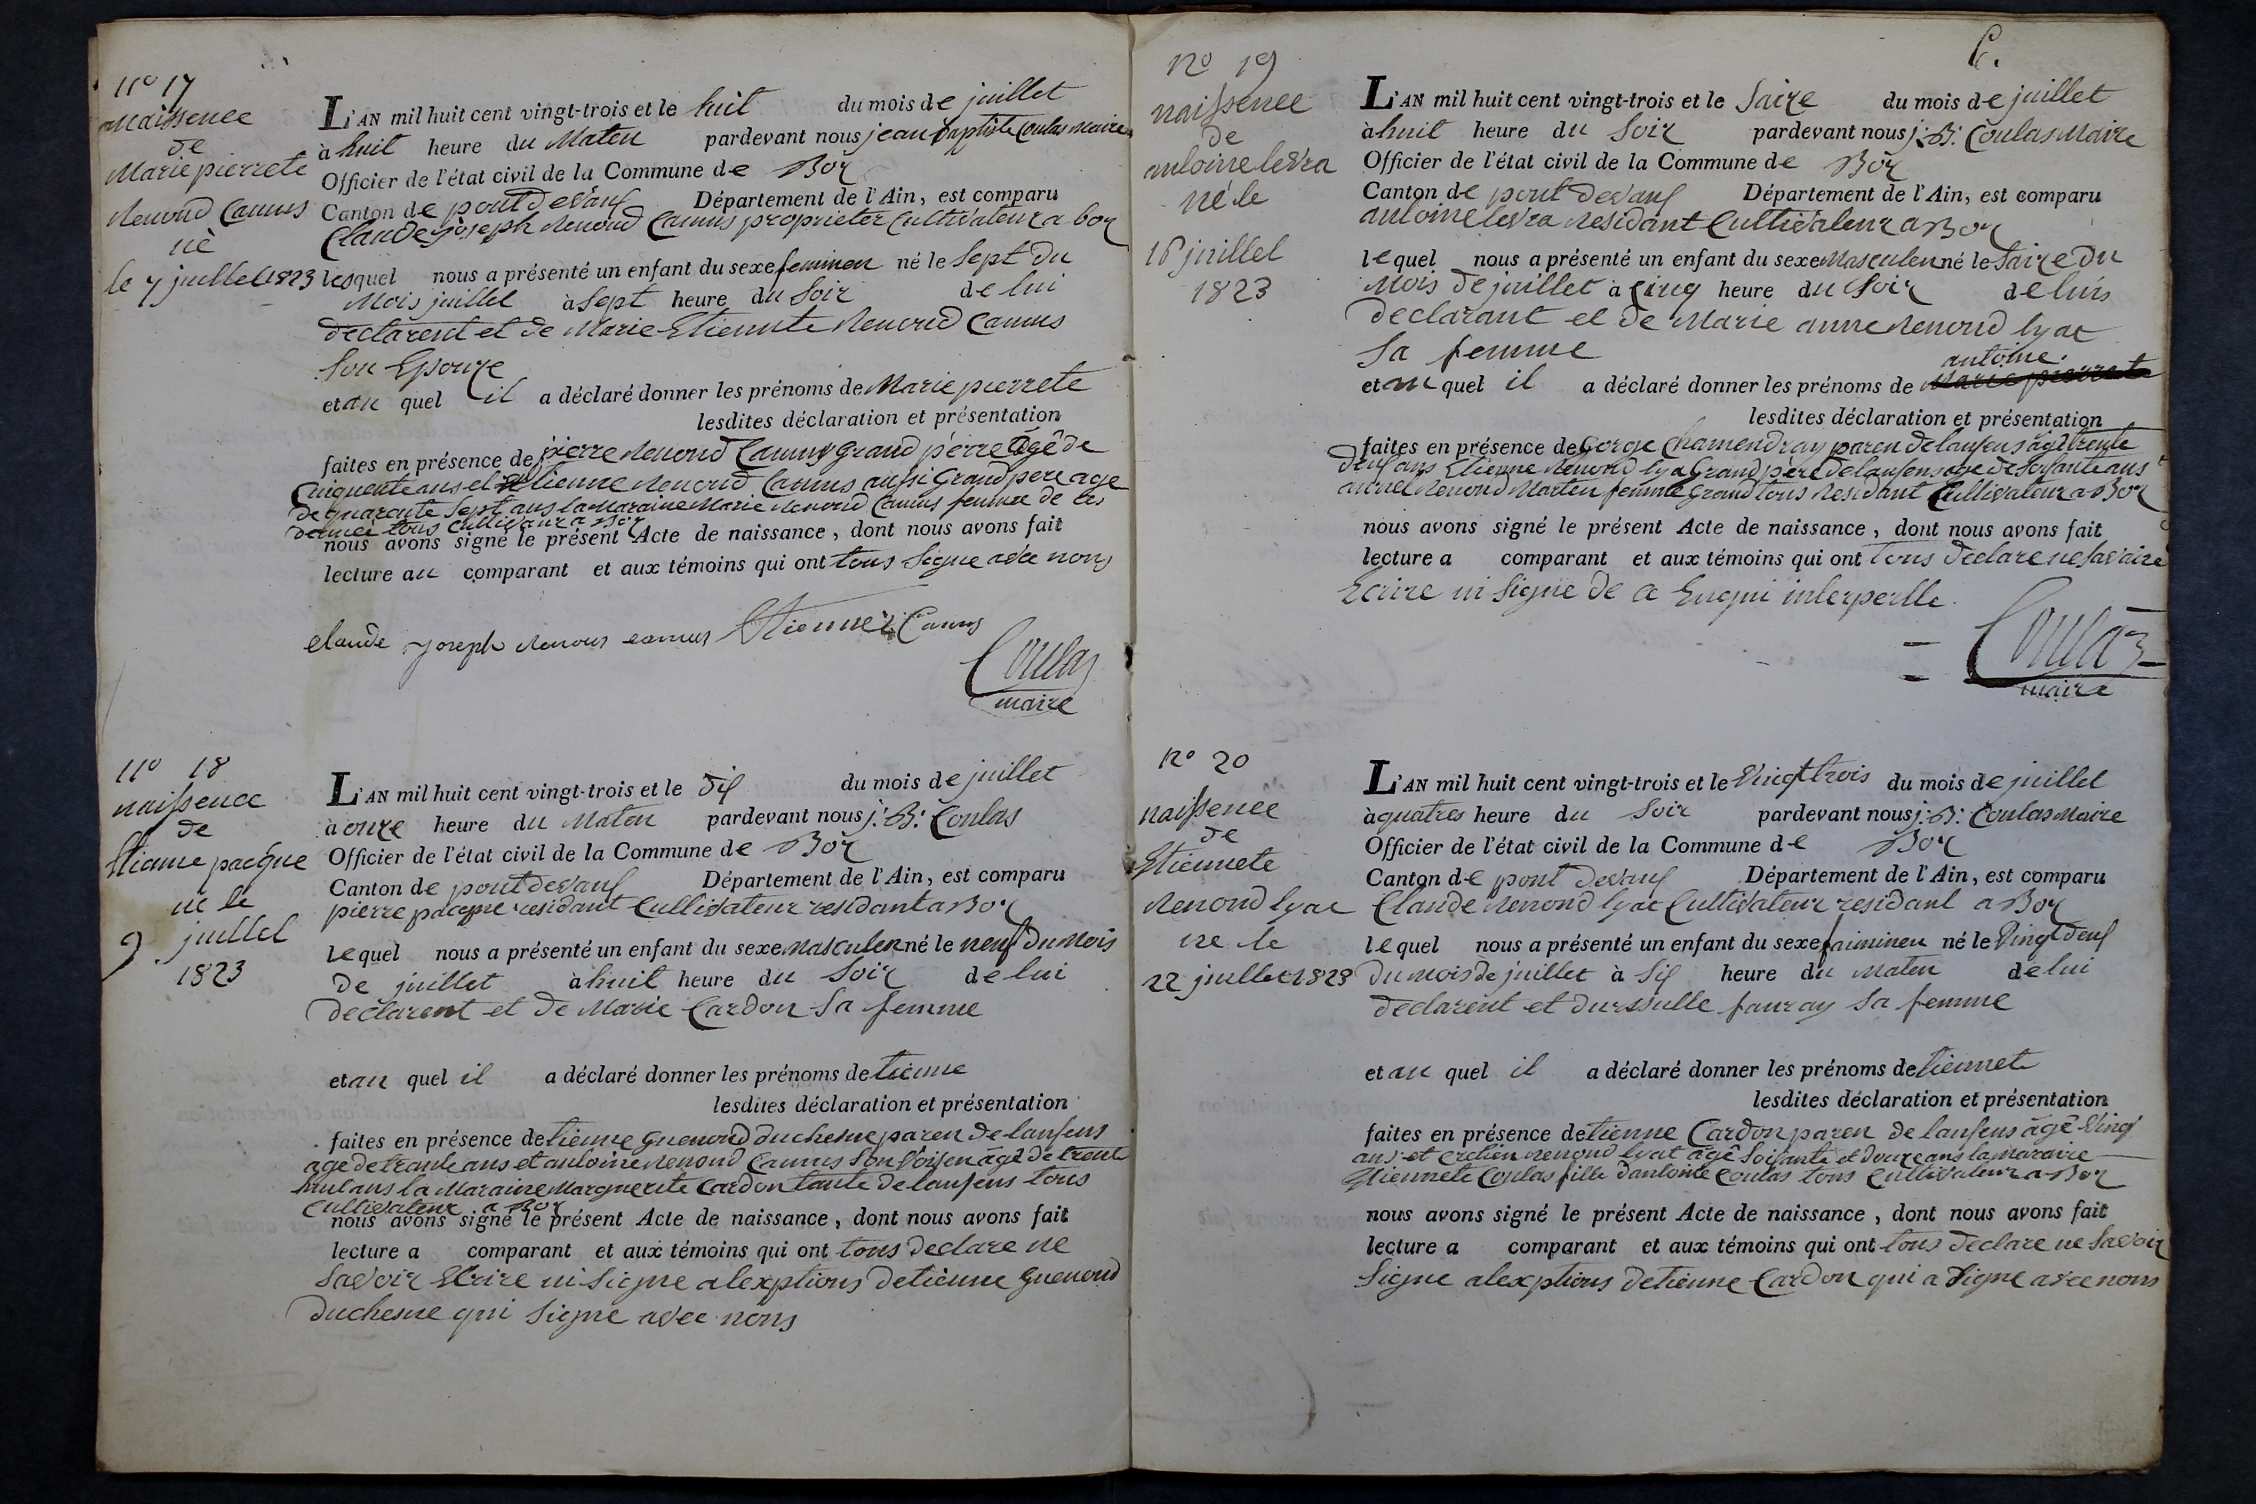 n° 17
naissence
de
Marie pierrete
Renoud Camus
né
le 7 juillet 1823
L'AN mil huit cent vingt-trois et le huit du mois de juillet
à huit heure du Maten pardevant nous jean baptiste Coulas Maire
Officier de l'état civil de la Commune de Boz
Canton de pont devaux Département de l'Ain, est comparu
Claude joseph Renoud Camus proprieter Cultivateur a boz
lesquel nous a présenté un enfant du sexe feminen né le Sept du
Mois juillet à Sept heure du Soir de lui
declarent et de Marie Etiennete Renoud Camus
Son Epouze
et au quel il a déclaré donner les prénoms de Marie pierrete
lesdites déclaration et présentation
faites en présence de pierre Renoud Camus Grand pérre Agê de
Cinquente ans et Etienne Renoud Camus aussi Grand pere age
de quarante Sept ans la Maraine Marie Renoud Camus femme de ces
dernier tous Cultivaur a Boz
nous avons signé le présent Acte de naissance, dont nous avons fait
lecture au comparant et aux témoins qui ont tous Signe avec nous
claude joseph Renous camus Etienne Camus
Coulas
maire
n° 18
naissence
de
Etienne pacque
ne le
9 juillet
1823
L'AN mil huit cent vingt-trois et le dix du mois de juillet
à onze heure du Maten pardevant nous j: B: Coulas
Officier de l'état civil de la Commune de Boz
Canton de pont devaux Département de l'Ain, est comparu
pierre pacque residant Cultivateur residant a Boz
Lequel nous a présenté un enfant du sexe Masculen né le neuf du Mois
de juillet à huit heure du Soir de lui
declarent et de Marie Cardon Sa femme
et au quel il a déclaré donner les prénoms de tienne
lesdites déclaration et présentation
faites en présence de tienne Guenoud duchesne paren de lanfens
age de trante ans et antoine Renoud Camus Son Voisen agé de trente
huit ans la Maraine Marguerite Cardon tante de lanfens tous
Cultivateur a Boz
nous avons signé le présent Acte de naissance, dont nous avons fait
lecture a comparant et aux témoins qui ont tous declare ne
Savoir Ecrire ni Signe alexptions detienne Guenoud
duchesne qui Signe avec nous
6.
n° 19
naissence
de
antoine levra
né le
16 juillel
1823
L'AN mil huit cent vingt-trois et le Saize du mois de juillet
à huit heure du Soir pardevant nous j: B: Coulas Maire
Officier de l'état civil de la Commune de Boz
Canton de pont devaux Département de l'Ain, est comparu
antoine levra Residant Cultivateur a Boz
lequel nous a présenté un enfant du sexe Masculen né le Saize du
Mois de juillet à cinq heure du Soir de luis
declarant et de Marie anne Renoud lyat
Sa femme
antoine.
et au quel il a déclaré donner les prénoms de Marie pierrete
lesdites déclaration et présentation
faites en présence de Gorge Chamendray paren de lanfens agê trente
deux ans Etienne Renoud lya Grand pére de lanfens age de Soisante ans
Renoud Marten femme Grand tous Residant Cultivateur a Boz
nous avons signé le présent Acte de naissance, dont nous avons fait
lecture a comparant et aux témoins qui ont tous declare ne Savaire
Ecrire ni Signe de ce Enqui interpelle
Coulas
maire
n° 20
naissence
de
Etiennete
Renoud lyat
ne le
22 juillet 1823
L'AN mil huit cent vingt-trois et le Vingt trois du mois de juillet
à quatres heure du Soir pardevant nous j: B: Coulas Maire
Officier de l'état civil de la Commune de Boz
Canton de pont devaux Département de l'Ain, est comparu
Claude Renoud lyat Cultivateur residant a Boz
lequel nous a présenté un enfant du sexe faiminen né le Vingt deux
du Mois de juillet à Six heure du Maten de lui
declarent et durssulle fauray Sa femme
et au quel il a déclaré donner les prénoms de tiennete
lesdites déclaration et présentation
faites en présence de tienne Cardon paren de lanfens agê Vingt
ans et Renoud lyat agê Soisante et douze ans la Maraire
Etiennete Coulas fille dantoine Coulas tous Cultivateur a Boz
nous avons signé le présent Acte de naissance, dont nous avons fait
lecture a comparant et aux témoins qui ont tous declare ne Savoir
Signe alexptions detienne Cardon qui a Signe avec nous